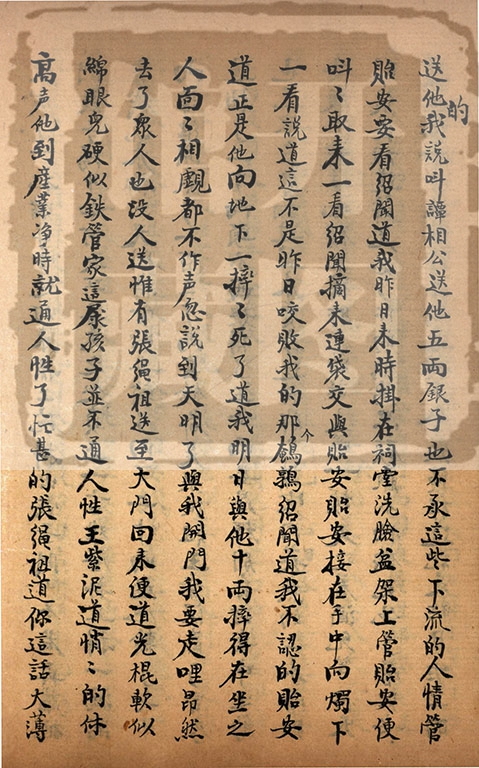 送他的我說叫譚相公送他五兩銀子也不承這些下流的人情管
貽安要看紹聞道我昨日来時掛在祠堂洗臉盆架上管貽安便
叫〻取来一看紹聞摘来連袋交與貽安貽安接在手中向燭下
一看說道這不是昨日咬敗我的那个鵪鶉紹聞道我不認的貽安
道正是他向地下一摔〻死了道我明日與他十兩摔得在坐之
人面〻相覷都不作声忽說到天明了與我開門我要走哩昂然
去了衆人也没人送惟有張繩祖送至大門回来便道光棍軟似
綿眼兒硬似鉄管家這尿孩子並不通人性王紫泥道悄〻的休
高声他到產業净時就通人性了忙甚的張繩祖道你這話大薄